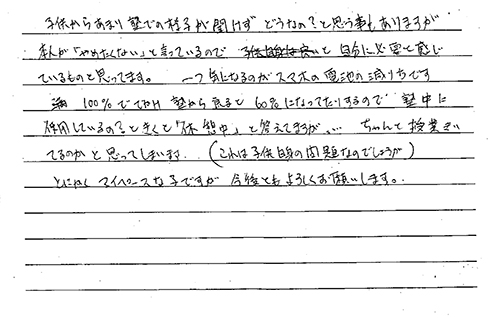 子供からあまり塾での様子が聞けず どうなの？と思う事もありますが
本人が「やめたくない」と言っているので 自分に必要と感じ
ているものと思ってます。 一つ気になるのがスマホの電池の減りちです
100%ででかけ 塾から戻ると 60%になってたりするので 塾中に
使用しているの？ときくと「休憩中」と答えてますが、… ちゃんと授業きい
てるのかと思ってしまいます。(これは子供自身の問題なのでしょうが)
とにかく マイペースな子ですが 今後ともよろしくお願いします。